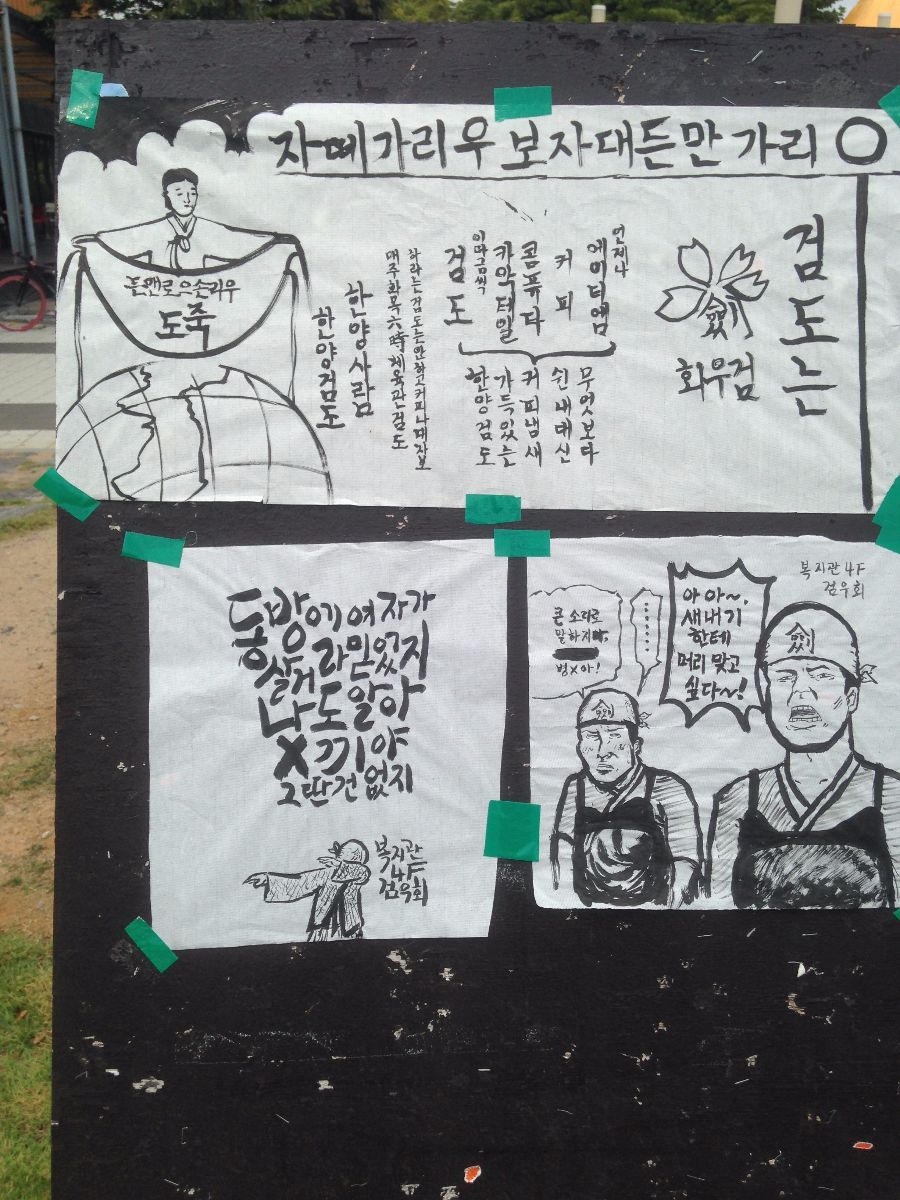 자떼가리우 보자대든만 가리 ○
검도는
회우검
언제나
에이티엠
커피
콤퓨타
카악테일
이따금씩
검도
무엇보다
쉰내대신
커피냄새
가득있는
한양검도
하라는검도는안하고커피나대자보
매주화목六時체육관검도
한양사람
한양검도
든맨로으손리우
도죽
동방에 여자가
살거라 믿었지
나도 알아
X끼야
그딴건 없지
복지관
4F
검우회
큰 소리로
말하지마,
병X아!
......
아아~,
새내기
한테
머리 맞고
싶다~!
복지관 4F
검우회